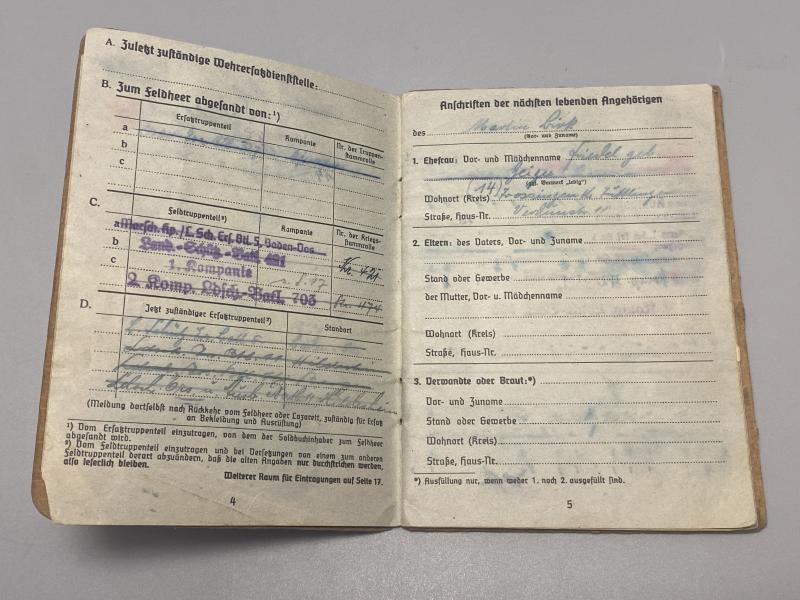 A. Zuletzt zuständige Wehrersatzdienststelle:
B. Zum Feldheer abgesandt von:¹)
Ersatztruppenteil
Kompanie
Nr. der Truppen-
stammrolle
a
b
c
C.
Feldtruppenteil²)
Kompanie
Nr. der Kriegs-
stammrolle
a Marsch. Kp./L. Sch. Ers. Btl. 5, Baden-Oos
b
c
1. Kompanie
2. Komp. Ldsch.-Batl. 703
D.
Jetzt zuständiger Ersatztruppenteil²)
Standort
(Meldung dortselbst nach Rückkehr vom Feldheer oder Lazarett, zuständig für Ersatz
an Bekleidung und Ausrüstung)
¹) Vom Ersatztruppenteil einzutragen, von dem der Soldbuchinhaber zum Feldheer
abgesandt wird.
²) Vom Feldtruppenteil einzutragen und bei Versetzungen von einem zum anderen
Feldtruppenteil derart abzuändern, daß die alten Angaben nur durchstrichen werden,
also leserlich bleiben.
Weiterer Raum für Eintragungen auf Seite 17.
4
Anschriften der nächsten lebenden Angehörigen
des Martin Birk
(Vor- und Zuname)
1. Ehefrau: Vor- und Mädchenname Friedel geb.
Geiger
(ggf. Vermerk „ledig")
Wohnort (Kreis)
(14) Trossingen Kr. Tuttlingen
Straße, Haus-Nr.
2. Eltern: des Vaters, Vor- und Zuname
Stand oder Gewerbe
der Mutter, Vor- u. Mädchenname
Wohnort (Kreis)
Straße, Haus-Nr.
3. Verwandte oder Braut:*)
Vor- und Zuname
Stand oder Gewerbe
Wohnort (Kreis)
Straße, Haus-Nr.
*) Ausfüllung nur, wenn weder 1. noch 2. ausgefüllt sind.
5